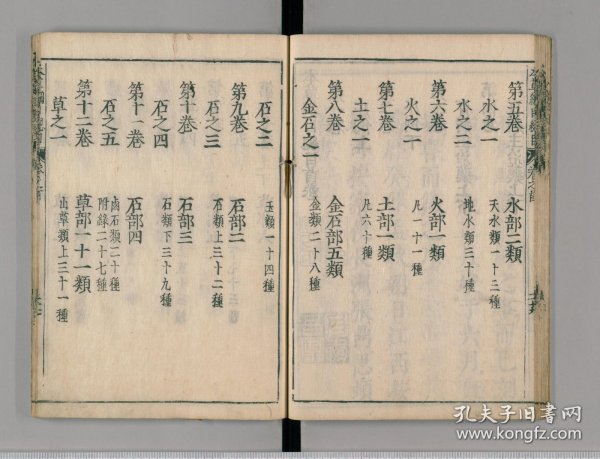 第五卷 水部二類
水之一 天水類一十三種
水之二 地水類三十種
第六卷 火部一類
火之一 凡一十一種
第七卷 土部一類
土之一 凡六十種
第八卷 金石部五類
金石之一 金類二十八種
石之二 玉類一十四種
第九卷 石部二
石之三 石類上三十二種
第十卷 石部三
石之四 石類下三十九種
第十一卷 石部四
石之五 鹵石類二十種
附錄二十七種
第十二卷 草部一十一類
草之一 山草類上三十一種
孔夫子旧书网
www.kongfz.com